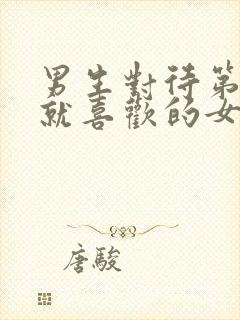 男生對待第
就喜歡的女
唐駿